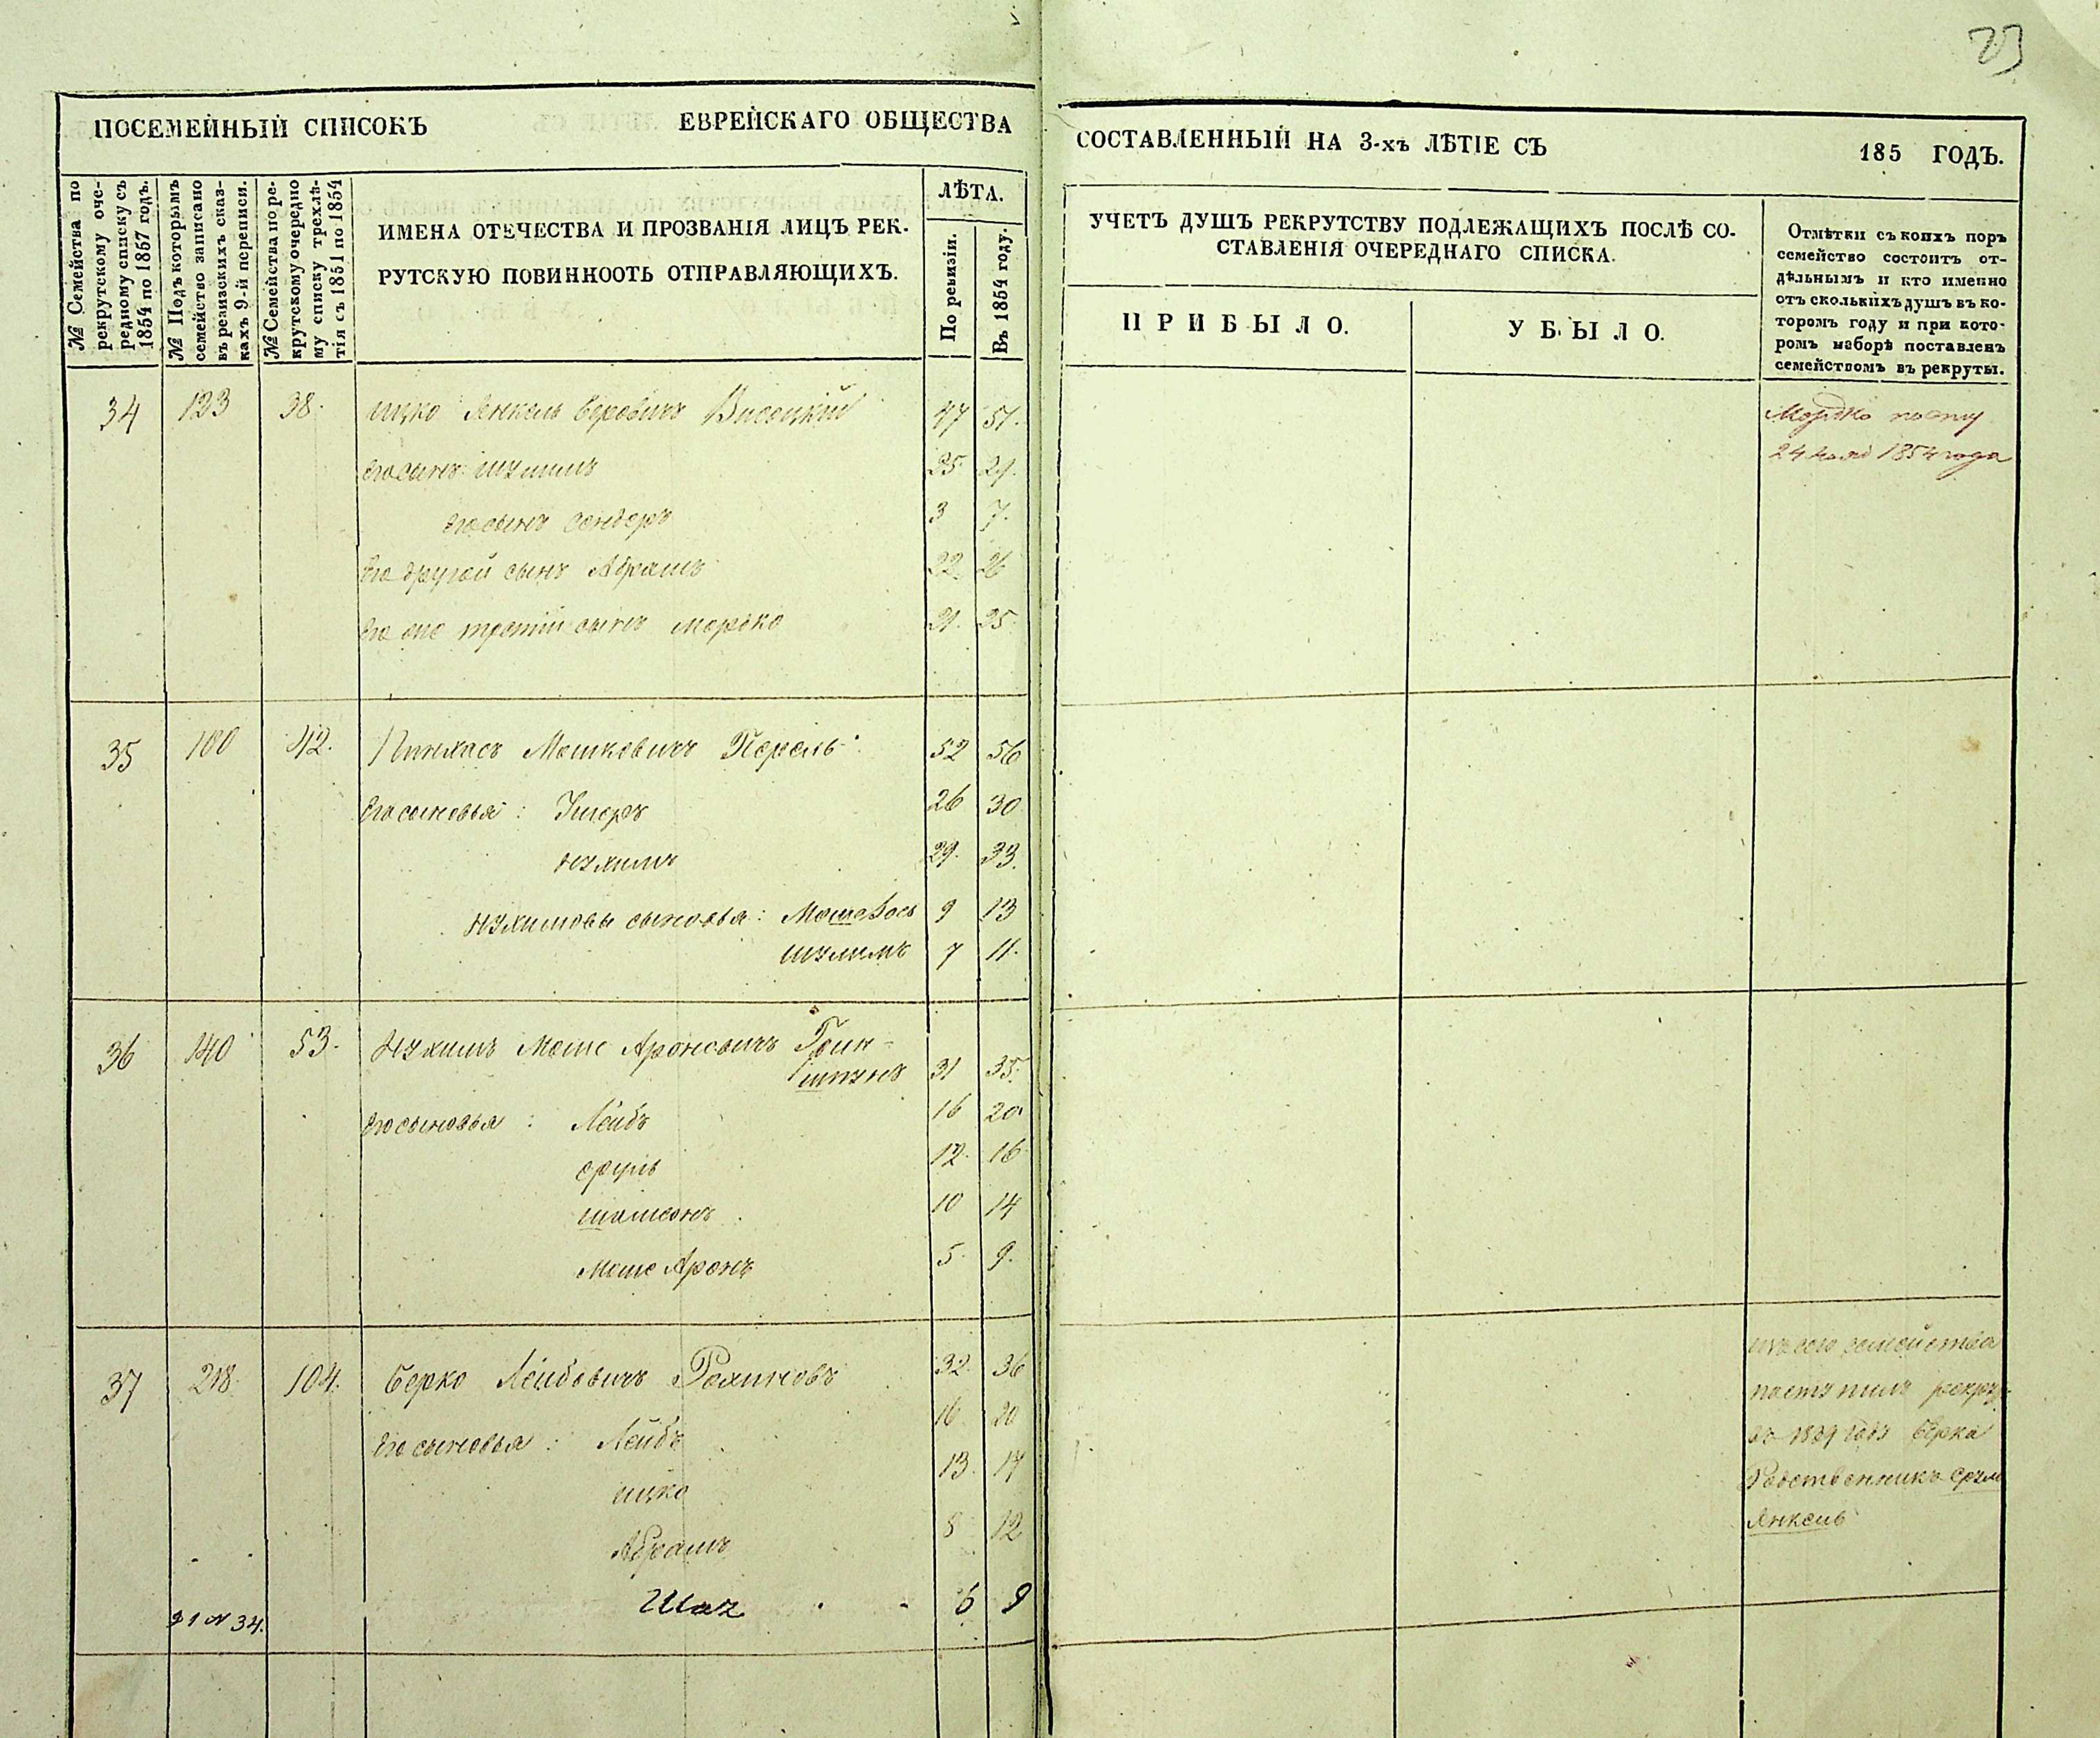 23
ПОСЕМЕЙНЫЙ СПИСОКЪ ЕВРЕЙСКАГО ОБЩЕСТВА
СОСТАВЛЕННЫЙ НА 3-хъ ЛѢТІЕ СЪ 185 ГОДЪ.
№ Семейства по
рекрутскому оче-
редному списку съ
1854 по 1857 годъ.
№ Подъ которымъ
семейство записано
въ ревизскихъ сказ-
кахъ 9-й переписи.
№ Семейства по ре-
крутскому очередно
му списку трехлѣ-
тія съ 1851 по 1854
ИМЕНА ОТЕЧЕСТВА И ПРОЗВАНІЯ ЛИЦЪ РЕК-
РУТСКУЮ ПОВИННООТЬ ОТПРАВЛЯЮЩИХЪ.
ЛѢТА.
По ревизіи.
Въ 1854 году.
УЧЕТЪ ДУШЪ РЕКРУТСТВУ ПОДЛЕЖАЩИХЪ ПОСЛѢ СО-
СТАВЛЕНІЯ ОЧЕРЕДНАГО СПИСКА.
ПРИБЫЛО.
УБЫЛО.
Отмѣтки съ коихъ поръ
семейство состоитъ от-
дѣльнымъ и кто именно
отъ сколькихъ душъ въ ко-
торомъ году и при кото-
ромъ наборѣ поставленъ
семействомъ въ рекруты.
34 123 38. Ицко Янкель Беровичъ Высоцкій 47 51.
его сынъ Шулимъ 25 29.
его сынъ Сендеръ 3 7.
его другой сынъ Абрамъ 22 26
его же третій сынъ Мордко 21. 25
Мордко посту
1854 года
35 100 42. Пинхасъ Мошковичъ Перель 52 56
его сыновья: Ушеръ 26 30
Нухимъ 29. 33.
Нухимовы сыновья: 9 13
Шулимъ 7 11.
36 140 53. Нухимъ Моше Ароновичъ Грин-
шпунъ 31 35.
его сыновья: Лейбъ 16 20
Сруль 12. 16
Шамсонъ 10 14
Моше Аронъ 5. 9.
37 218. 104. Берко Лейбовичъ Рахиновъ 32. 36
его сыновья: Лейбъ 16 20
Ицко 13. 17
Абрамъ 8 12
Шая 6 9
34.
изъ сего семейства
поступилъ рекру-
въ 1839 году Берка
Родственникъ Срул
Янкель